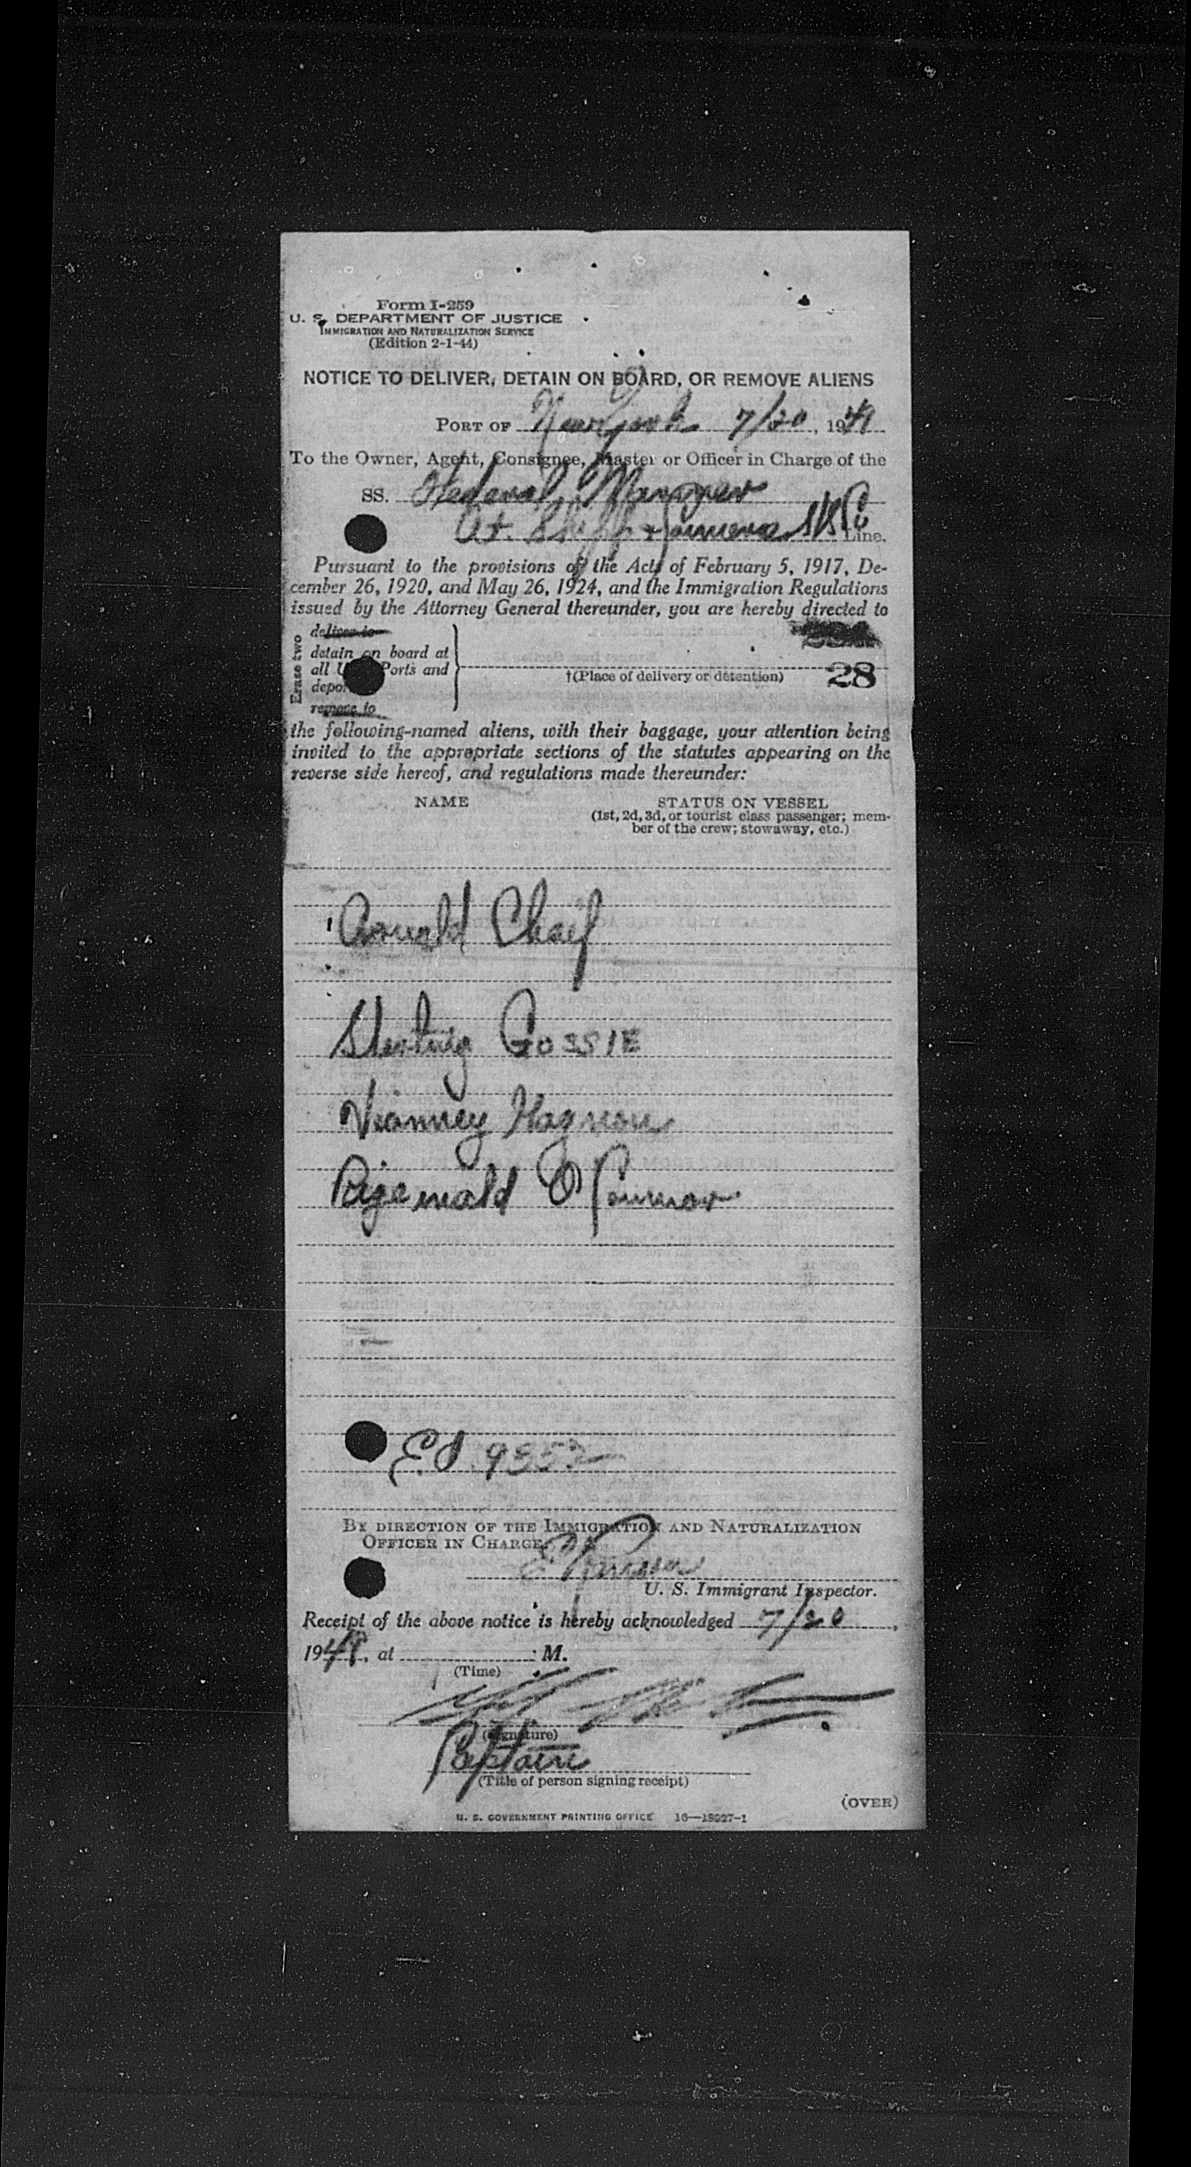 Form I-259
U. S. DEPARTMENT OF JUSTICE
IMMIGRATION AND NATURALIZATION SERVICE
(Edition 2-1-44)
NOTICE TO DELIVER, DETAIN ON BOARD, OR REMOVE ALIENS
PORT OF New York 7/20, 1949
To the Owner, Agent, Consignee, Master or Officer in Charge of the
SS. Federal
Line.
Pursuant to the provisions of the Acts of February 5, 1917, De-
cember 26, 1920, and May 26, 1924, and the Immigration Regulations
issued by the Attorney General thereunder, you are hereby directed to
Erase two
deliver to
detain on board at
all U Ports and
depor
remove to
†(Place of delivery or detention)
28
the following-named aliens, with their baggage, your attention being
invited to the appropriate sections of the statutes appearing on the
reverse side hereof, and regulations made thereunder:
NAME STATUS ON VESSEL
(1st, 2d, 3d, or tourist class passenger; mem-
ber of the crew; stowaway, etc.)
Arnold
GOSSIE
Vianney
O'Connor
9552
BY DIRECTION OF THE IMMIGRATION AND NATURALIZATION
OFFICER IN CHARGE
U. S. Immigrant Inspector.
Receipt of the above notice is hereby acknowledged 7/20,
1949, at : M.
(Time)
(Signature)
Captain
(Title of person signing receipt)
(OVER)
U. S. GOVERNMENT PRINTING OFFICE 16—18227-1